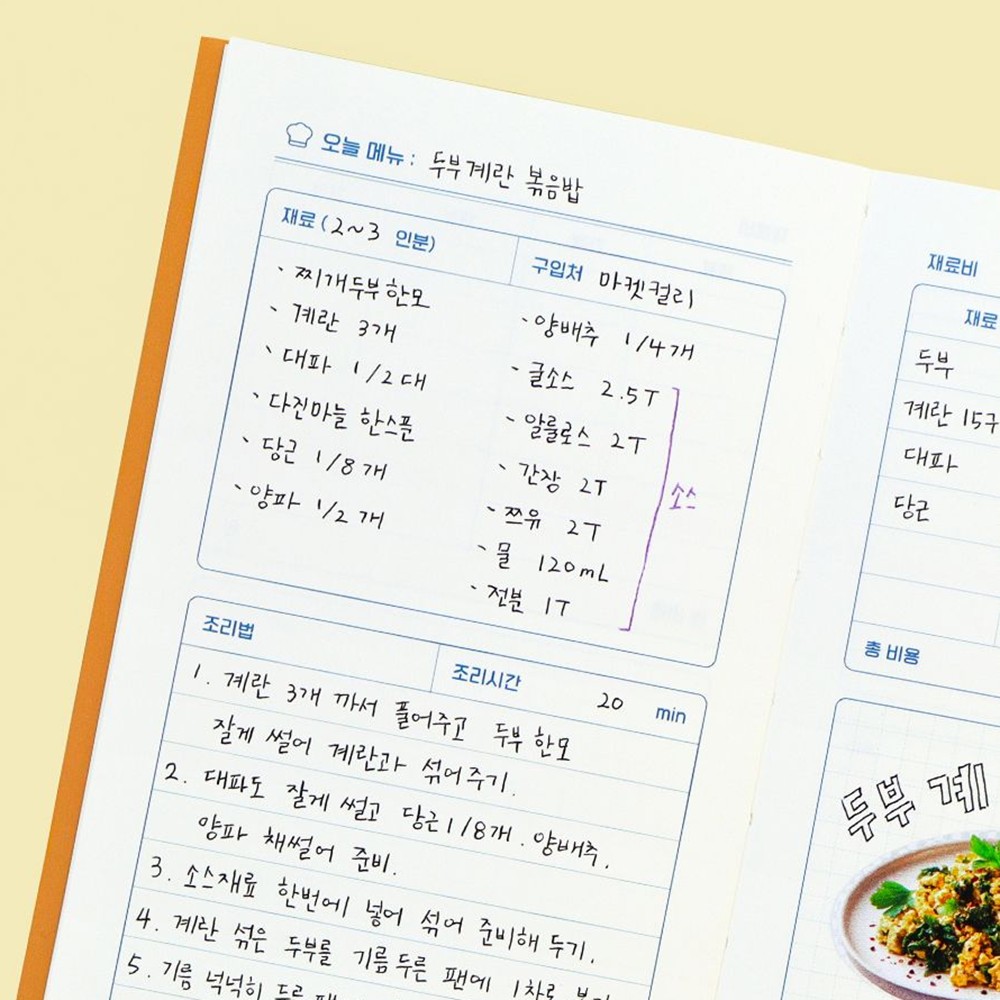 오늘 메뉴 : 두부계란 볶음밥
재료 (2~3 인분)
구입처 마켓컬리
· 찌개두부 한모
· 계란 3개
· 대파 1/2대
· 다진마늘 한스푼
· 당근 1/8개
· 양파 1/2개
· 양배추 1/4개
· 굴소스 2.5T
· 알룰로스 2T
· 간장 2T
· 쯔유 2T
· 물 120mL
· 전분 1T
소스
조리법
조리시간 20 min
1. 계란 3개 까서 풀어주고 두부 한모
잘게 썰어 계란과 섞어주기.
2. 대파도 잘게 썰고 당근 1/8개. 양배추.
양파 채썰어 준비.
3. 소스재료 한번에 넣어 섞어 준비해 두기.
4. 계란 섞은 두부를 기름 두른 팬에 1차로
5. 기름 넉넉히 두른
재료비
재료
두부
계란 15구
대파
당근
총 비용
두부 계